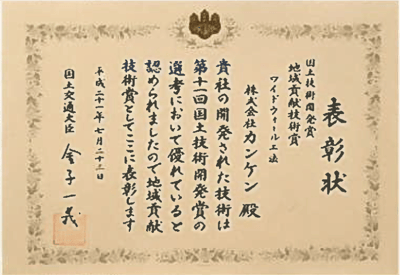 表彰状
国土技術開発賞
地域貢献技術賞
ワイドウォール工法
株式会社カンケン殿
貴社の開発された技術は
第十一回国土技術開発賞の
選考において優れていると
認められましたので地域貢献
技術賞としてここに表彰します
平成二十一年七月二十二日
国土交通大臣 金子一義